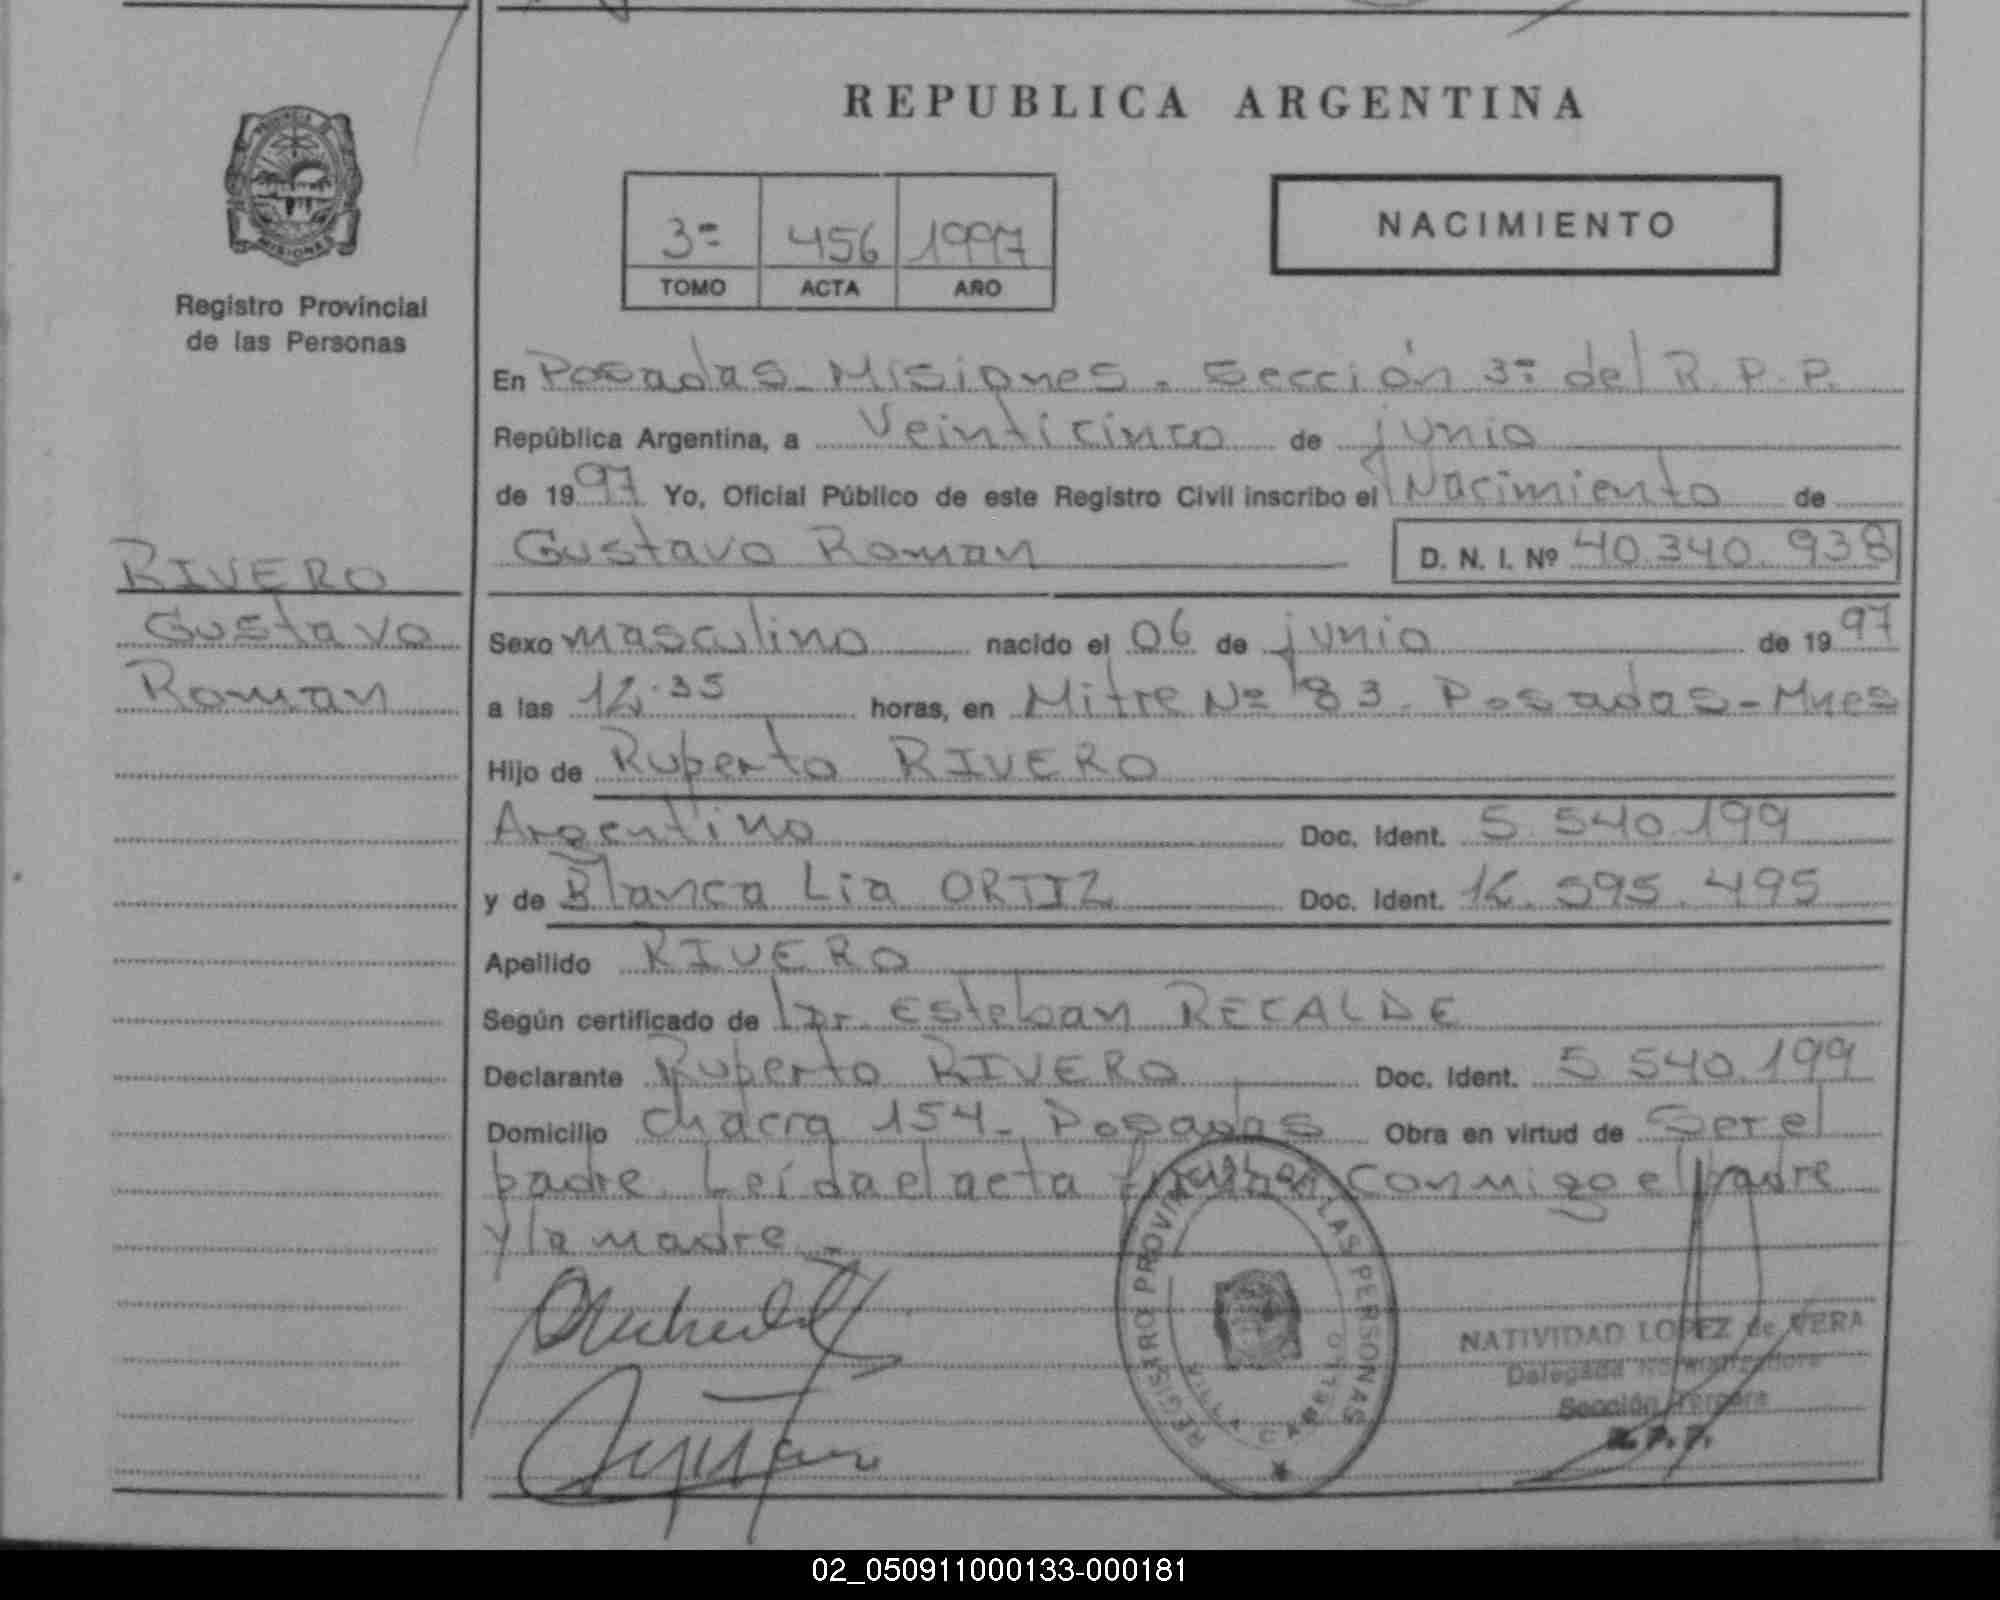 REPUBLICA ARGENTINA
PROVINCIA DE
MISIONES
Registro Provincial
de las Personas
3ª 456 1997
TOMO ACTA AÑO
NACIMIENTO
En Posadas - Misiones. Sección 3ª del R. P. P.
República Argentina, a Veinticinco de junio
de 1997 Yo, Oficial Público de este Registro Civil inscribo el Nacimiento de
Gustavo Roman D. N. I. Nº 40.340.938
RIVERO
Gustavo
Roman
Sexo masculino nacido el 06 de junio de 1997
a las 12.35 horas, en Mitre Nº 83. Posadas - Mnes
Hijo de Ruperto RIVERO
Argentino Doc. Ident. 5.540.199
y de Blanca Lia ORTIZ Doc. Ident. 12.595.495
Apellido RIVERO
Según certificado de Dr. Esteban RECALDE
Declarante Ruperto RIVERO Doc. Ident. 5.540.199
Domicilio chacra 154 - Posadas Obra en virtud de Ser el
padre. Leída el acta firman conmigo el padre
y la madre. -
REGISTRO PROVINCIAL DE LAS PERSONAS
VILLA CABELLO
NATIVIDAD LOPEZ de VERA
Delegada
Sección Tercera
R.P.P.
02_050911000133-000181